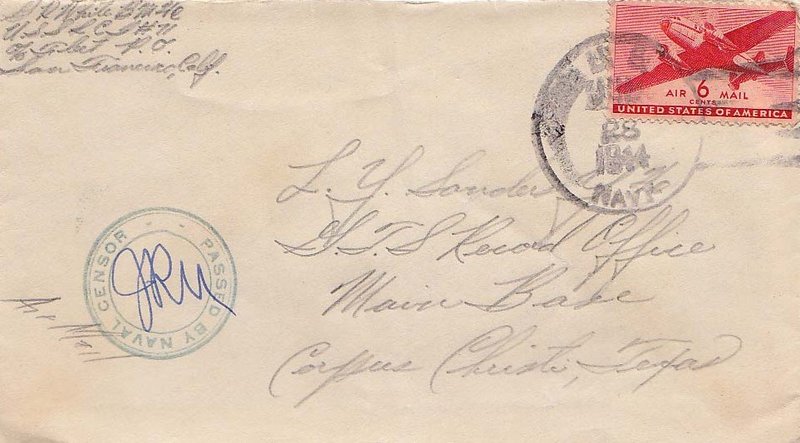 White
U.S.S. LCI #
℅ Fleet P.O.
San Francisco, Calif.
AIR 6 MAIL
CENTS
UNITED STATES OF AMERICA
28
1944
NAVY
L. Y. Sander
Record Office
Main Base
Corpus Christi, Texas
PASSED BY NAVAL CENSOR
JRM
Air Mail